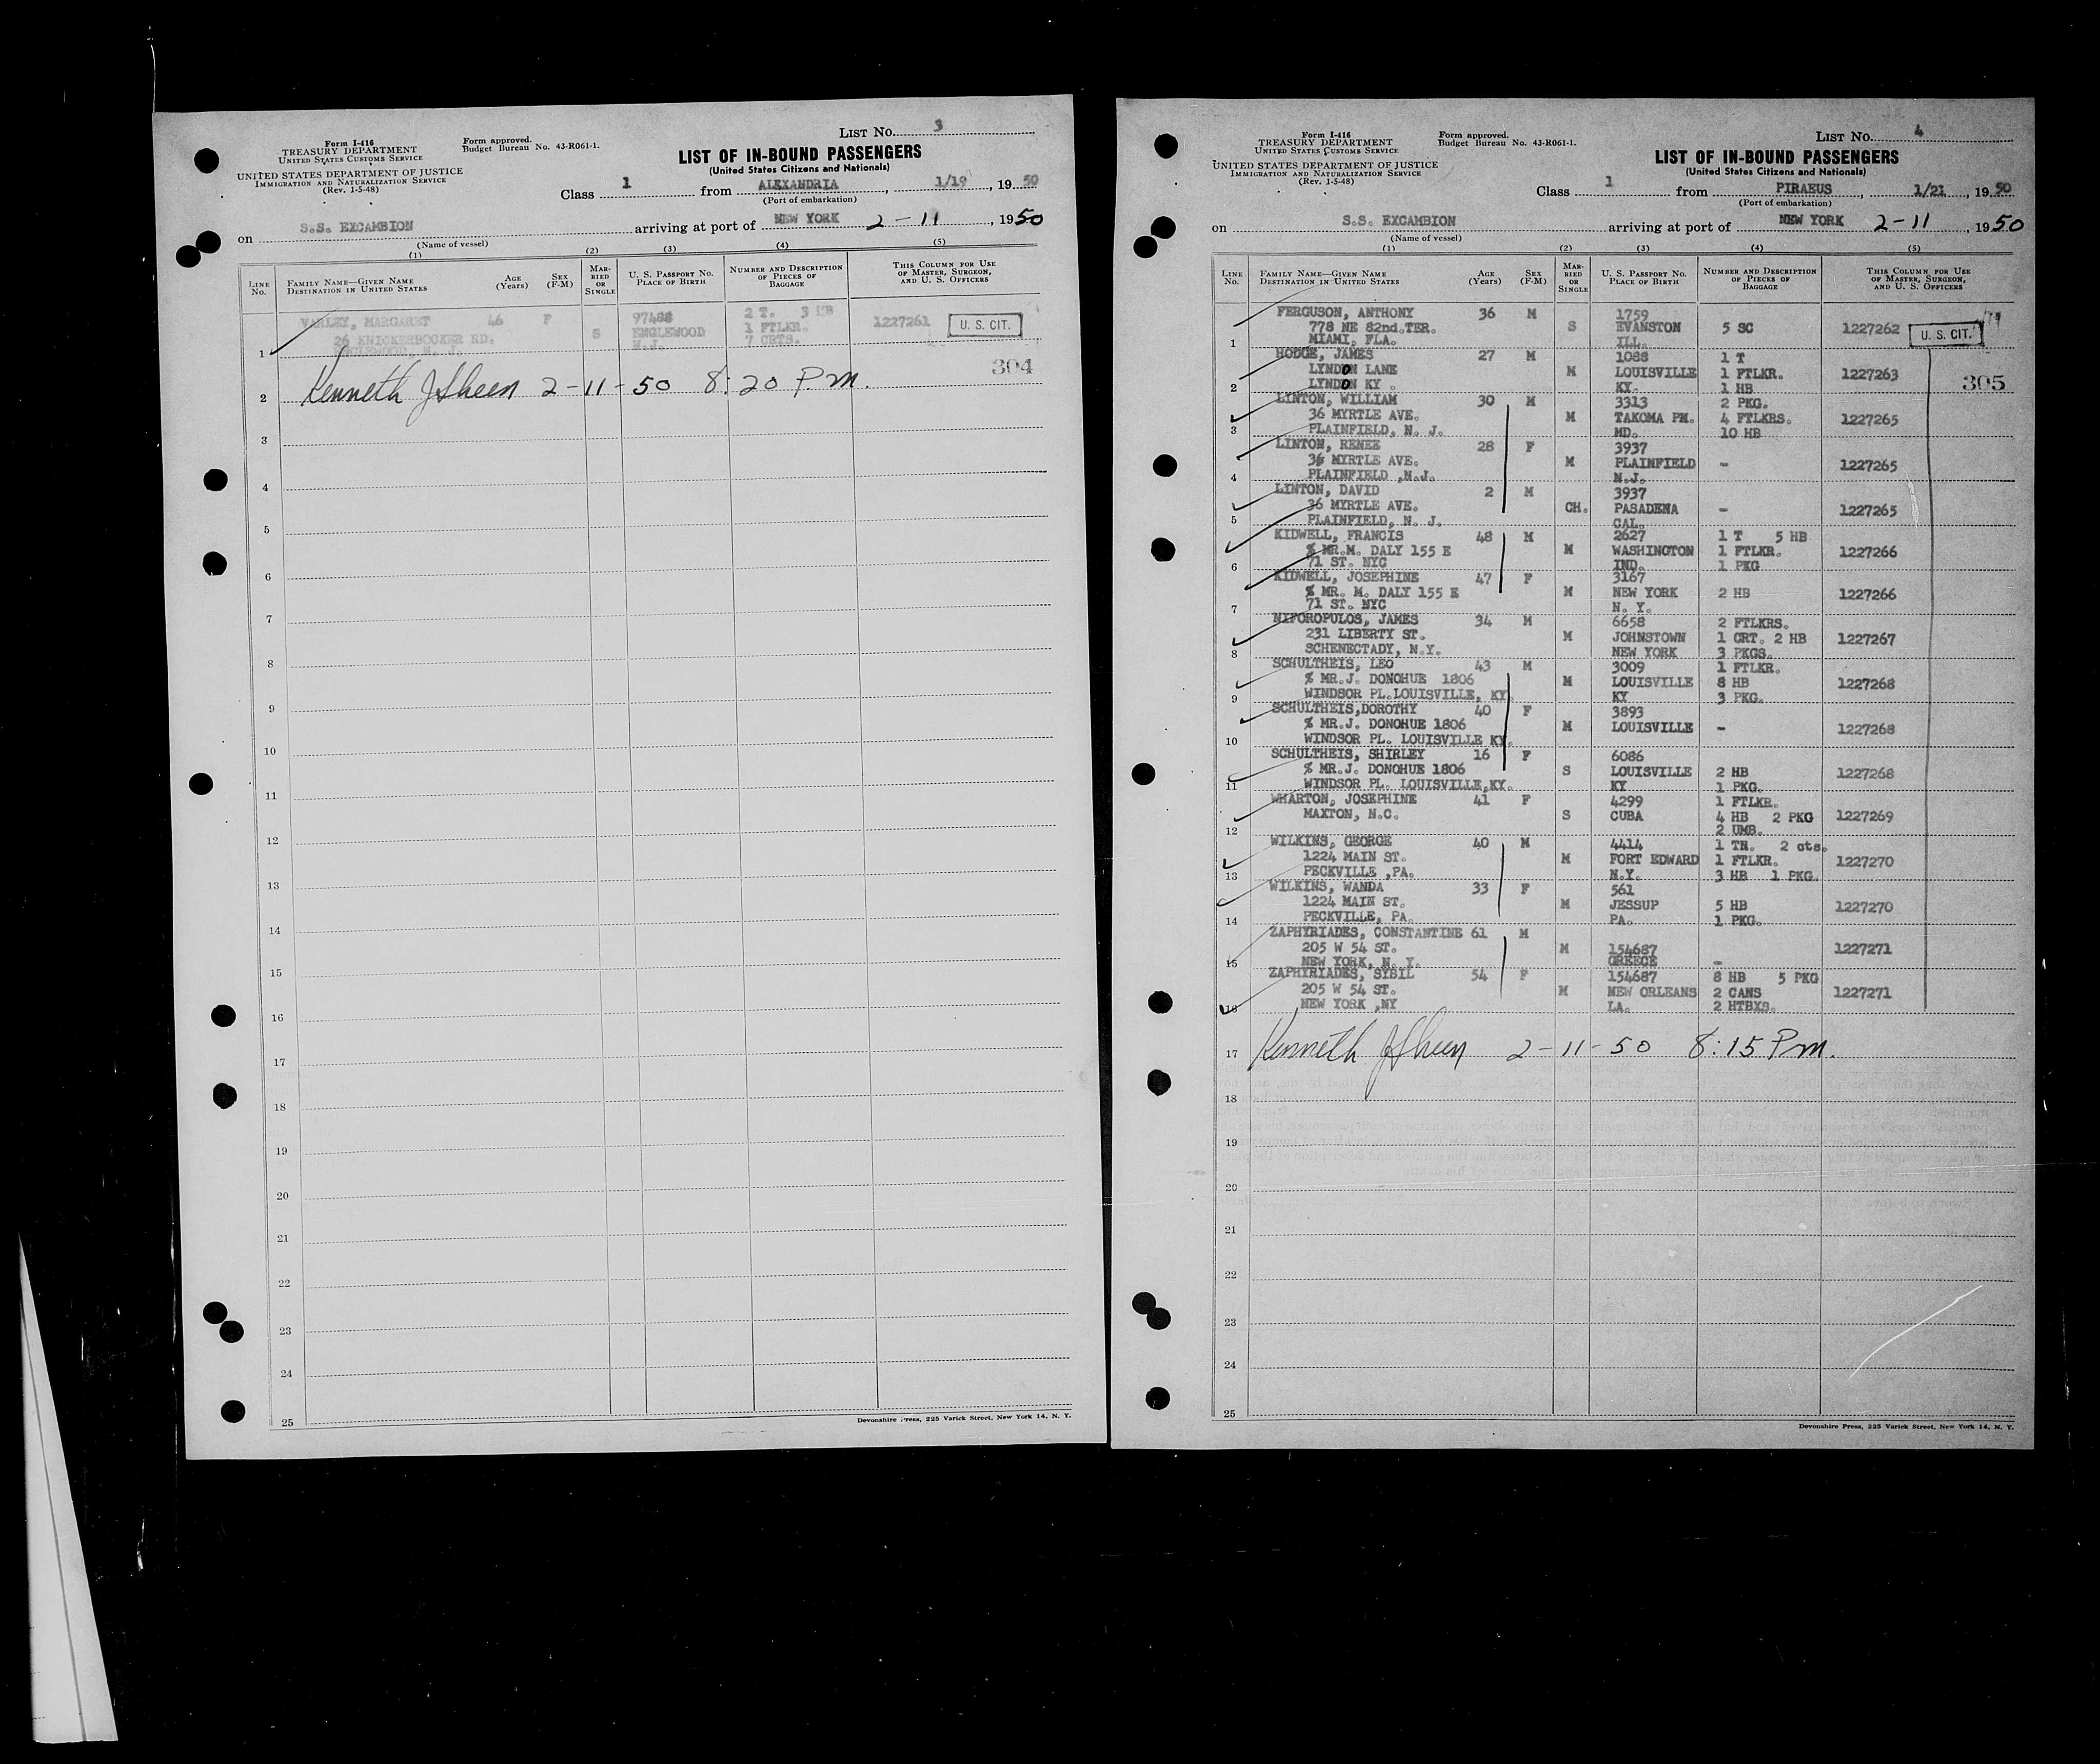 LIST No. 3
Form I-416
TREASURY DEPARTMENT
UNITED STATES CUSTOMS SERVICE
UNITED STATES DEPARTMENT OF JUSTICE
IMMIGRATION AND NATURALIZATION SERVICE
(Rev. 1-5-48)
Form approved.
Budget Bureau No. 43-R061-1.
LIST OF IN-BOUND PASSENGERS
(United States Citizens and Nationals)
Class 1 from ALEXANDRIA, 1/19, 1950
(Port of embarkation)
on S.S. EXCAMBION arriving at port of NEW YORK 2-11, 1950
(Name of vessel)
(1) (2) (3) (4) (5)
LINE No. FAMILY NAME—GIVEN NAME DESTINATION IN UNITED STATES AGE (Years) SEX (F-M) MARRIED OR SINGLE U. S. PASSPORT No. PLACE OF BIRTH NUMBER AND DESCRIPTION OF PIECES OF BAGGAGE THIS COLUMN FOR USE OF MASTER, SURGEON, AND U. S. OFFICERS
VARLEY, MARGARET 46 F 97488 2 T. 3 HB
26 KNICKERBOCKER RD. S ENGLEWOOD 1 FTLKR. 1227261 U. S. CIT.
1 ENGLEWOOD, N. J. N.J. 7 CRTS.
304
2 Kenneth J Sheen 2-11-50 8:20 P.m.
3
4
5
6
7
8
9
10
11
12
13
14
15
16
17
18
19
20
21
22
23
24
25
Devonshire Press, 225 Varick Street, New York 14, N. Y.
LIST No. 4
Form I-416
TREASURY DEPARTMENT
UNITED STATES CUSTOMS SERVICE
UNITED STATES DEPARTMENT OF JUSTICE
IMMIGRATION AND NATURALIZATION SERVICE
(Rev. 1-5-48)
Form approved.
Budget Bureau No. 43-R061-1.
LIST OF IN-BOUND PASSENGERS
(United States Citizens and Nationals)
Class 1 from PIRAEUS, 1/21, 1950
(Port of embarkation)
on S.S. EXCAMBION arriving at port of NEW YORK 2-11, 1950
(Name of vessel)
(1) (2) (3) (4) (5)
LINE No. FAMILY NAME—GIVEN NAME DESTINATION IN UNITED STATES AGE (Years) SEX (F-M) MARRIED OR SINGLE U. S. PASSPORT No. PLACE OF BIRTH NUMBER AND DESCRIPTION OF PIECES OF BAGGAGE THIS COLUMN FOR USE OF MASTER, SURGEON, AND U. S. OFFICERS
FERGUSON, ANTHONY 36 M 1759
778 NE 82nd.TER. S EVANSTON 5 SC 1227262 U. S. CIT.
1 MIAMI, FLA. ILL.
HODGE, JAMES 27 M 1088 1 T
LYNDON LANE M LOUISVILLE 1 FTLKR. 1227263
2 LYNDON KY . KY. 1 HB 305
LINTON, WILLIAM 30 M 3313 2 PKG.
36 MYRTLE AVE. M TAKOMA PK. 4 FTLKRS. 1227265
3 PLAINFIELD, N. J. MD. 10 HB
LINTON, RENEE 28 F 3937
36 MYRTLE AVE. M PLAINFIELD - 1227265
4 PLAINFIELD ,N.J. N.J.
LINTON, DAVID 2 M 3937
36 MYRTLE AVE. CH. PASADENA - 1227265
5 PLAINFIELD, N. J. CAL.
KIDWELL, FRANCIS 48 M 2627 1 T 5 HB
% MR.M. DALY 155 E M WASHINGTON 1 FTLKR. 1227266
6 71 ST. NYC IND. 1 PKG
KIDWELL, JOSEPHINE 47 F 3167
% MR. M. DALY 155 E M NEW YORK 2 HB 1227266
7 71 ST. NYC N. Y.
NIFOROPULOS, JAMES 34 M 6658 2 FTLKRS.
231 LIBERTY ST. M JOHNSTOWN 1 CRT. 2 HB 1227267
8 SCHENECTADY, N.Y. NEW YORK 3 PKGS.
SCHULTHEIS, LEO 43 M 3009 1 FTLKR.
% MR.J. DONOHUE 1806 M LOUISVILLE 8 HB 1227268
9 WINDSOR PL.LOUISVILLE, KY. KY 3 PKG.
SCHULTHEIS,DOROTHY 40 F 3893
% MR.J. DONOHUE 1806 M LOUISVILLE - 1227268
10 WINDSOR PL. LOUISVILLE KY.
SCHULTHEIS, SHIRLEY 16 F 6086
% MR.J. DONOHUE 1806 S LOUISVILLE 2 HB 1227268
11 WINDSOR PL. LOUISVILLE,KY. KY 1 PKG.
WHARTON, JOSEPHINE 41 F 4299 1 FTLKR.
MAXTON, N.C. S CUBA 4 HB 2 PKG 1227269
12 2 UMB.
WILKINS, GEORGE 40 M 4414 1 TN. 2 cts.
1224 MAIN ST. M FORT EDWARD 1 FTLKR. 1227270
13 PECKVILLE ,PA. N.Y. 3 HB 1 PKG.
WILKINS, WANDA 33 F 561
1224 MAIN ST. M JESSUP 5 HB 1227270
14 PECKVILLE, PA. PA. 1 PKG.
ZAPHYRIADES, CONSTANTINE 61 M
205 W 54 ST. M 154687 1227271
15 NEW YORK, N. Y. GREECE -
ZAPHYRIADES, SYBIL 54 F 154687 8 HB 5 PKG
205 W 54 ST. M NEW ORLEANS 2 CANS 1227271
16 NEW YORK ,NY LA. 2 HTBXS.
17 Kenneth J Sheen 2-11-50 8:15 P.m.
18
19
20
21
22
23
24
25
Devonshire Press, 225 Varick Street, New York 14, N. Y.